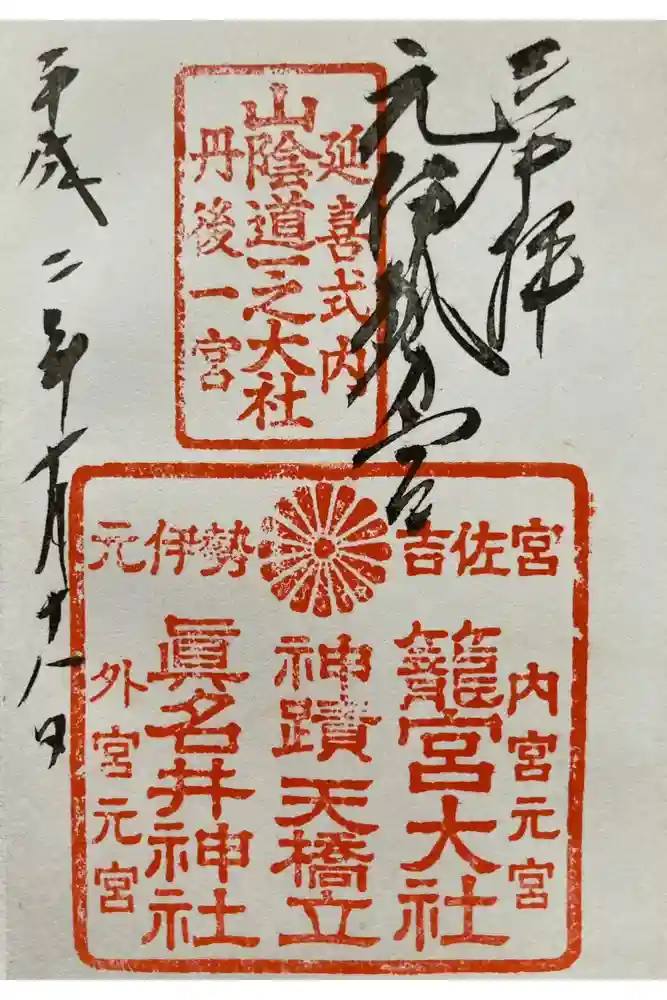 奉拝
元伊勢宮
延喜式内
山陰道一之大社
丹後一宮
元伊勢 吉佐宮
内宮元宮
籠宮大社
神蹟 天橋立
眞名井神社
外宮元宮
平成二年十月十八日